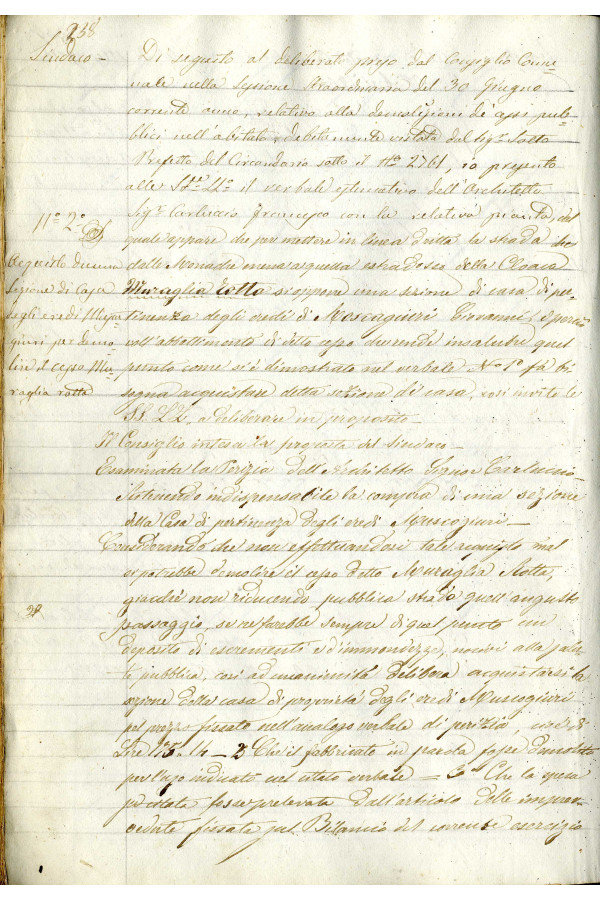 238
Sindaco - Di seguito al deliberato preso dal Consiglio Comu=
nale nella Sessione Straordinaria del 30 Giugno
corrente anno, relativo alla demolizione de cessi pub=
blici nell'abitato, debitamente vistata dal Sigr Sotto
Prefetto del Circondario sotto il No 2761, io presento
alle il verbale estimativo dell'Architetto
Sigr Carluccio Francesco con la relativa pianta, dal
quale appare che per mettere in linea dritta la strada che
dalle Monache mena a questa estradosso della Cloaca
Muraglia rotta si oppone una sezione di casa di per=
tinenza degli eredi di Moscagiuri Giovanni, e perciò
coll'abbattimento di detto cesso che rende insalubre quel
punto come si è dimostrato nel verbale No 1o fa bi
sogna acquistare detta sezione di casa, così invito le
SS. LL. a deliberare in proposito -
No 2o
Acquisto di una
Sezione di Casa
degli eredi Musca
giuri per demo
lire il cesso Mu
raglia rotta
Il Consiglio intesa la proposta del Sindaco -
Esaminata la Perizia dell'Architetto Signor Carluccio -
Ritenendo indispensabile la compra di una sezione
della Casa di pertinenza degli eredi Muscogiuri -
Considerando che non effettuandosi tale acquisto mal
si potrebbe demolire il cesso detto Muraglia Rotta,
giacché non riducendo pubblica strada quell'angusto
passaggio, se ne farebbe sempre di quel punto un
deposito di escrementi e d'immondizze, nocivi alla salu
te pubblica, così ad unanimità delibera acquistarsi la
sezione della casa di proprietà degli eredi Muscogiuri
pel prezzo fissato nell'analogo verbale di perizia, cioè di
Lire 115.14 - 2o Che il fabbricato in parola fosse demolito
per l'uso indicato nel citato verbale = 3o Che la spesa
precitata fosse prelevata dall'articolo delle impre=
vedute fissata pel Bilancio del corrente esercizio